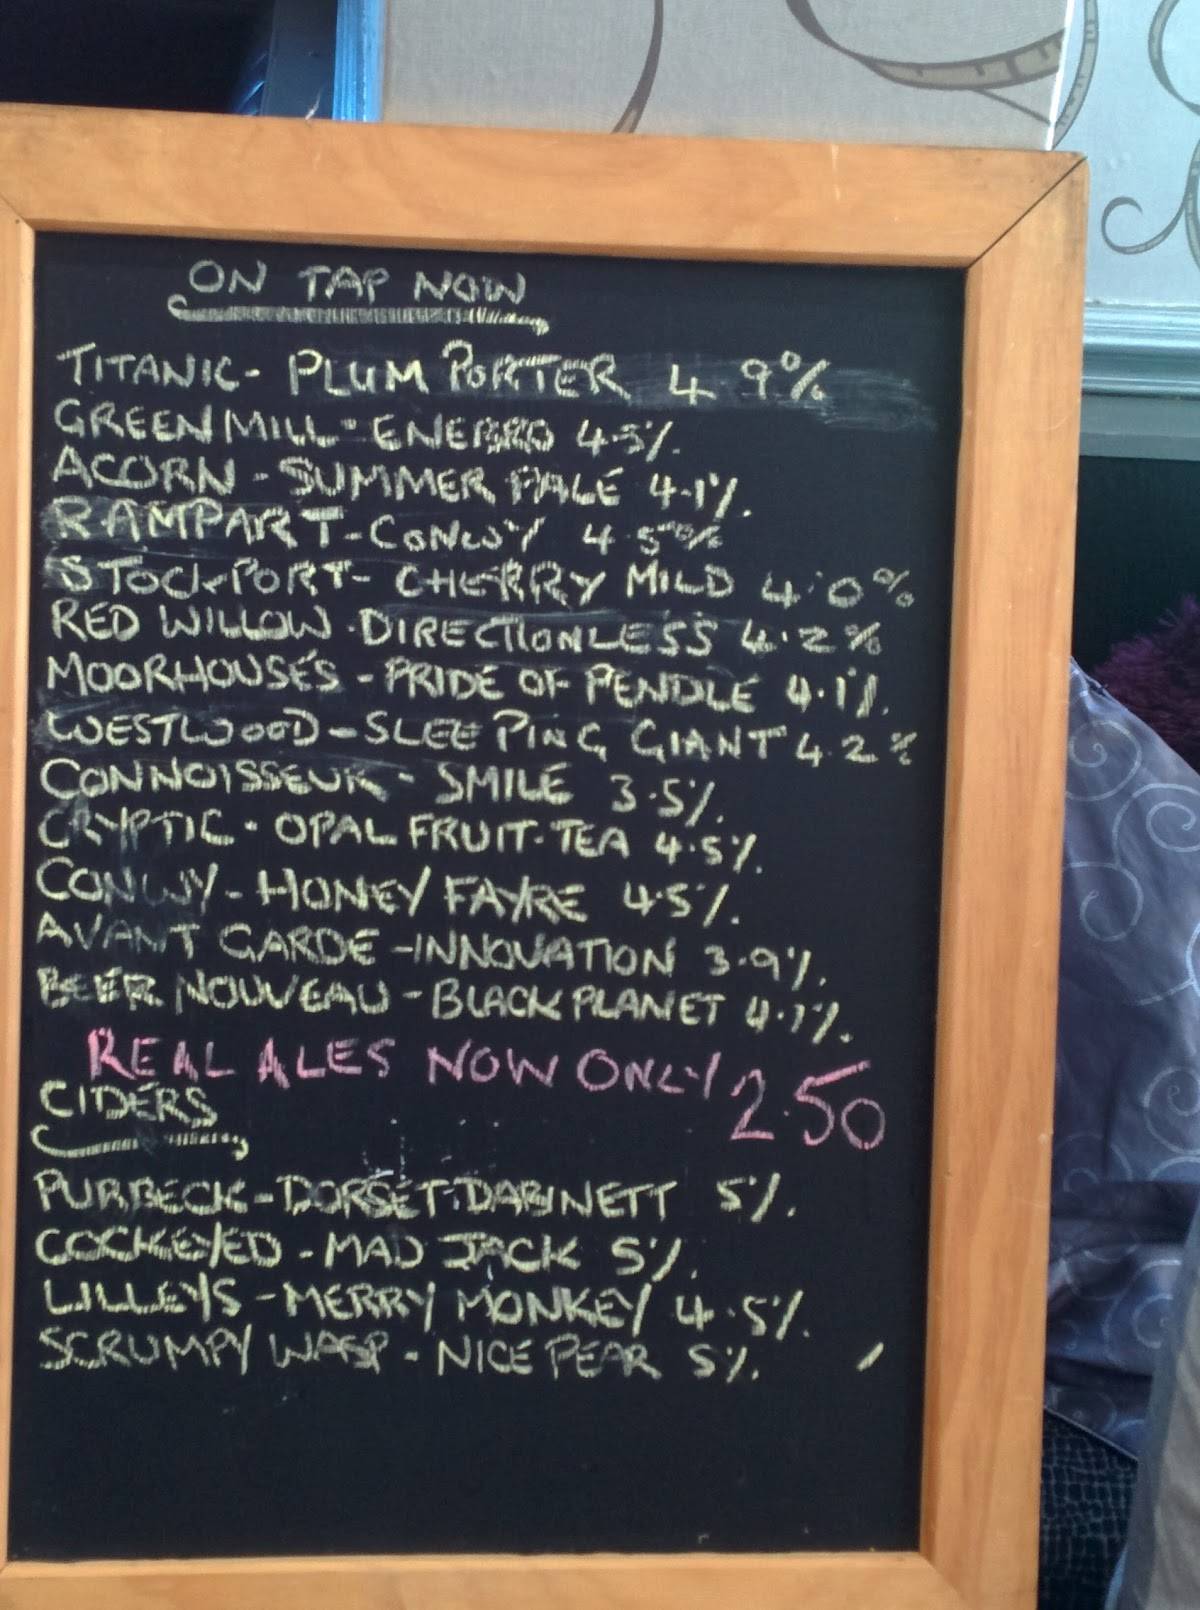 ON TAP NOW
TITANIC- PLUM PORTER 4 9%
GREEN MILL- 4.5%.
ACORN - SUMMER PALE 4.1%.
RAMPART - CONWY 4.5%
STOCKPORT- CHERRY MILD 4.0%
RED WILLOW - DIRECTIONLESS 4.2%
MOORHOUSE'S - PRIDE OF PENDLE 4.1%.
WESTWOOD - SLEEPING GIANT 4.2%
CONNOISSEUR - SMILE 3.5%.
CRYPTIC - OPAL FRUIT-TEA 4.5%.
CONWY - HONEY FAYRE 4.5%.
AVANT GARDE - INNOVATION 3.9%.
BEER NOUVEAU - BLACK PLANET 4.1%.
REAL ALES NOW ONLY 2.50
CIDERS
PURBECK - DORSET DABINETT 5%.
COCKEYED - MAD JACK 5%.
LILLEYS - MERRY MONKEY 4.5%.
SCRUMPY WASP - NICE PEAR 5%.